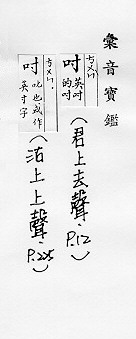 彙音寶鑑
ㄘㄨㄣˋ
吋 英吋的吋
(君上去聲、P.12)
ㄘㄨㄣˋ
吋 吃也或作英寸字
(沽上上聲、